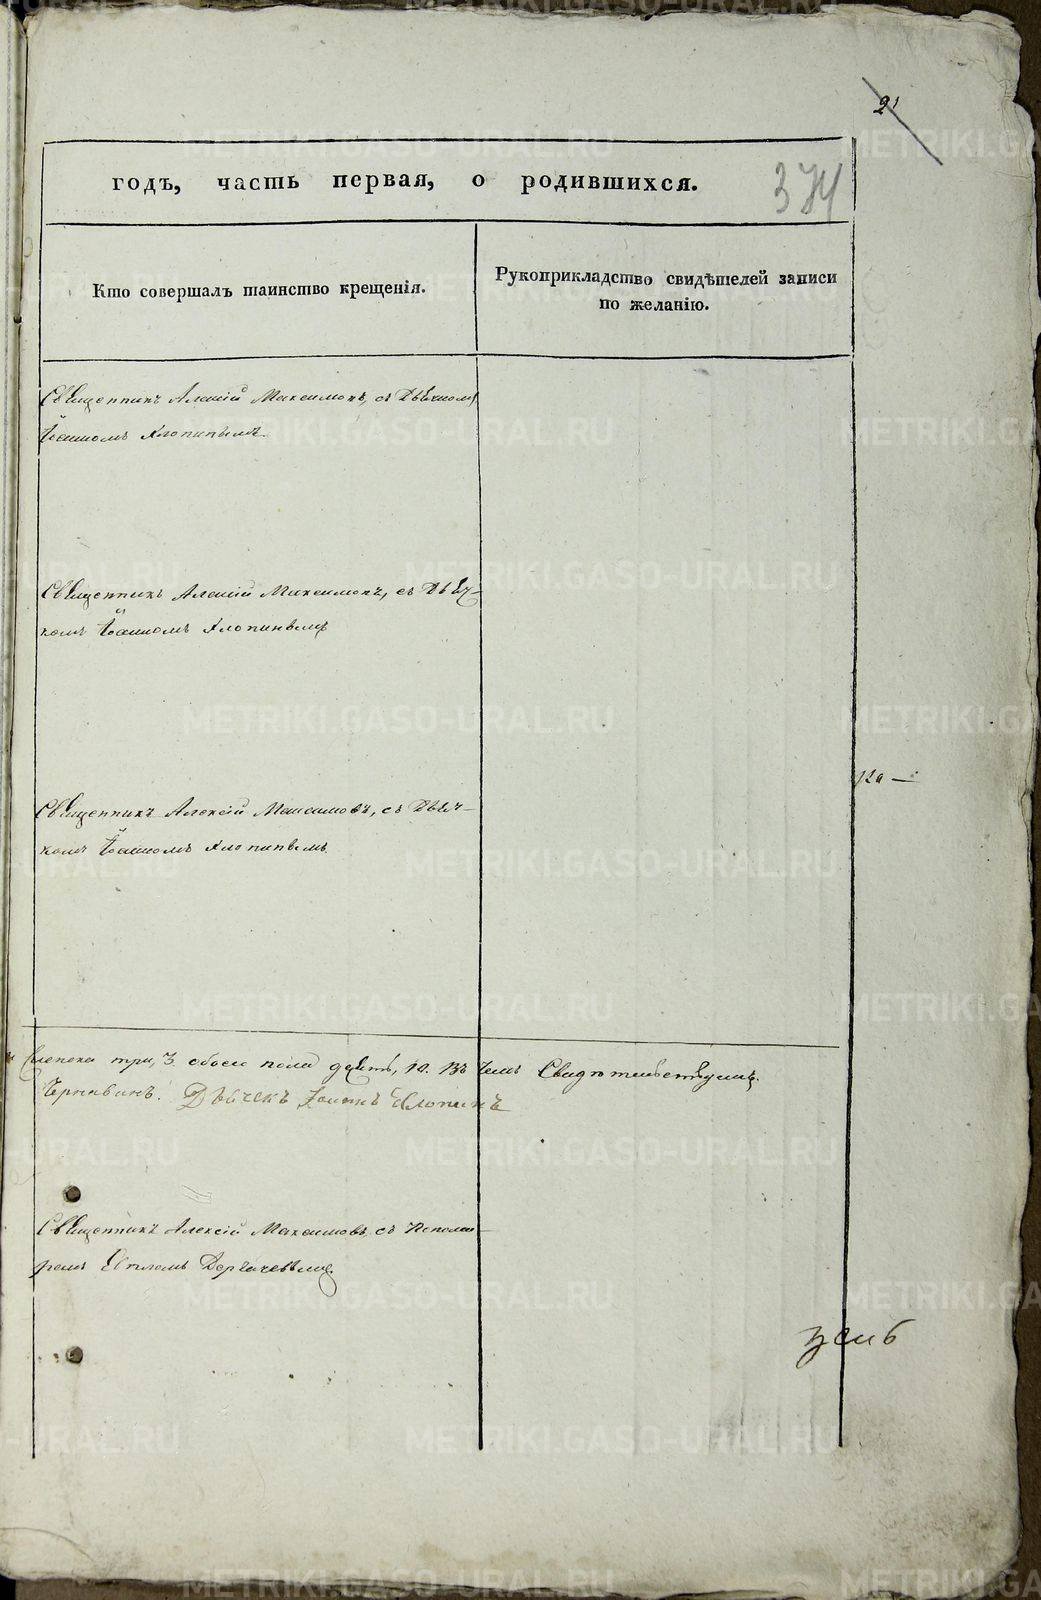 21
374
годъ, часть первая, о родившихся.
Кто совершалъ таинство крещенія.
Рукоприкладство свидѣтелей записи
по желанію.
Священникъ Алексій Максимовъ, съ Дьячкомъ
Іоанномъ Хлопинымъ
Священникъ Алексій Максимовъ, съ Дьяч-
комъ Іоанномъ Хлопинымъ
Священникъ Алексій Максимовъ, съ Дьяч-
комъ Іоанномъ Хлопинымъ
три, 3. обоего пола 10. Въ чемъ Свидѣтельствуемъ.
Дьячекъ Іоаннъ Хлопинъ
Священникъ Алексій Максимовъ, съ Понома-
ремъ Дергачевымъ
METRIKI.GASO-URAL.RU